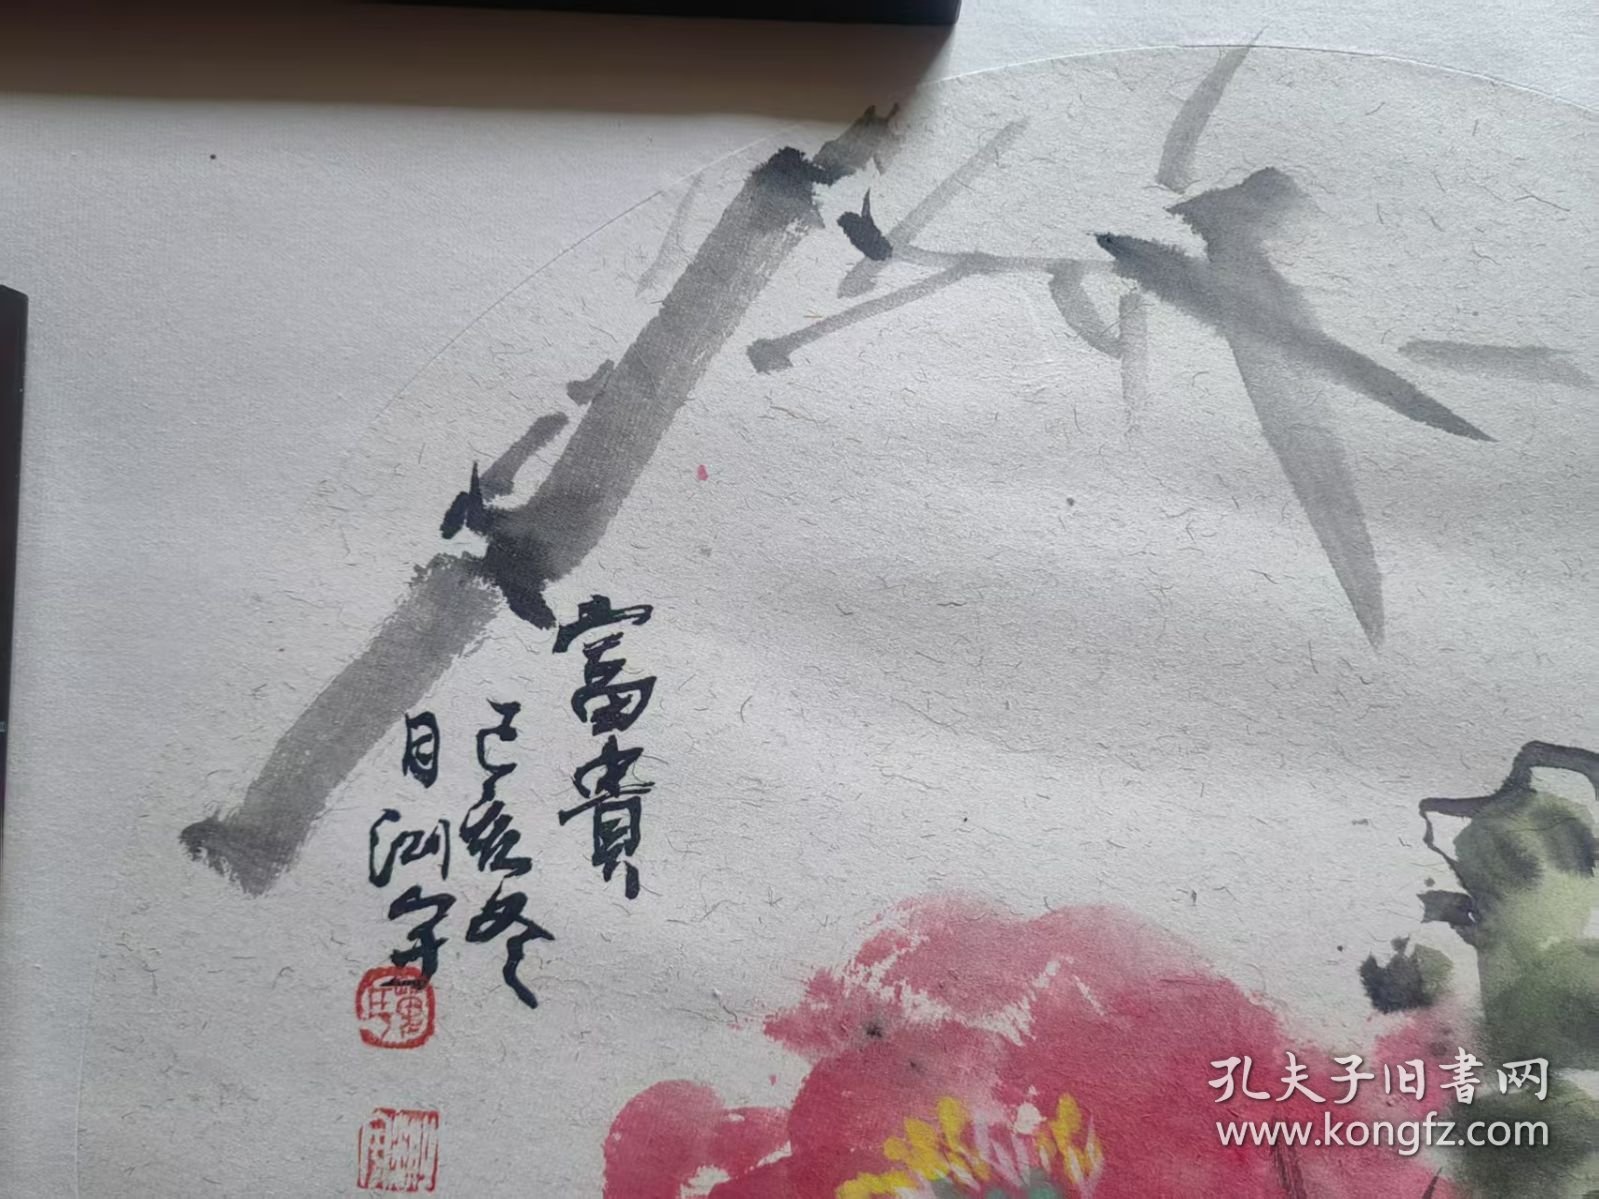 富貴
己亥冬
月洲
孔夫子旧書网
www.kongfz.com